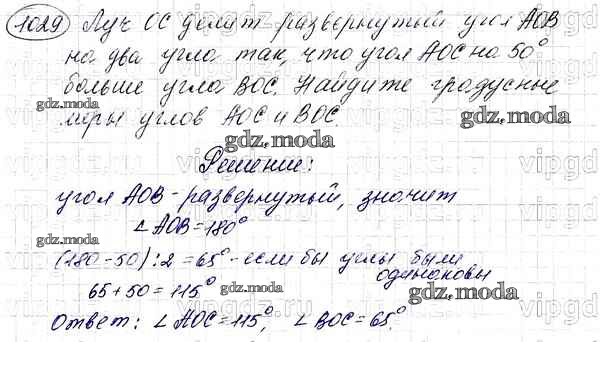 1029 Луч ОС делит развернутый угол АОВ
на два угла так, что угол АОС на 50°
больше угла ВОС. Найдите градусные
меры углов АОС и ВОС.
gdz.moda
gdz.moda
gdz.moda
Решение:
угол АОВ - развернутый, значит
∠ АОВ = 180°
gdz.moda
(180 - 50) : 2 = 65° - если бы углы были
одинаковы
65 + 50 = 115°
gdz.moda
gdz.moda
Ответ: ∠ АОС = 115°, ∠ ВОС = 65°.
gdz.moda